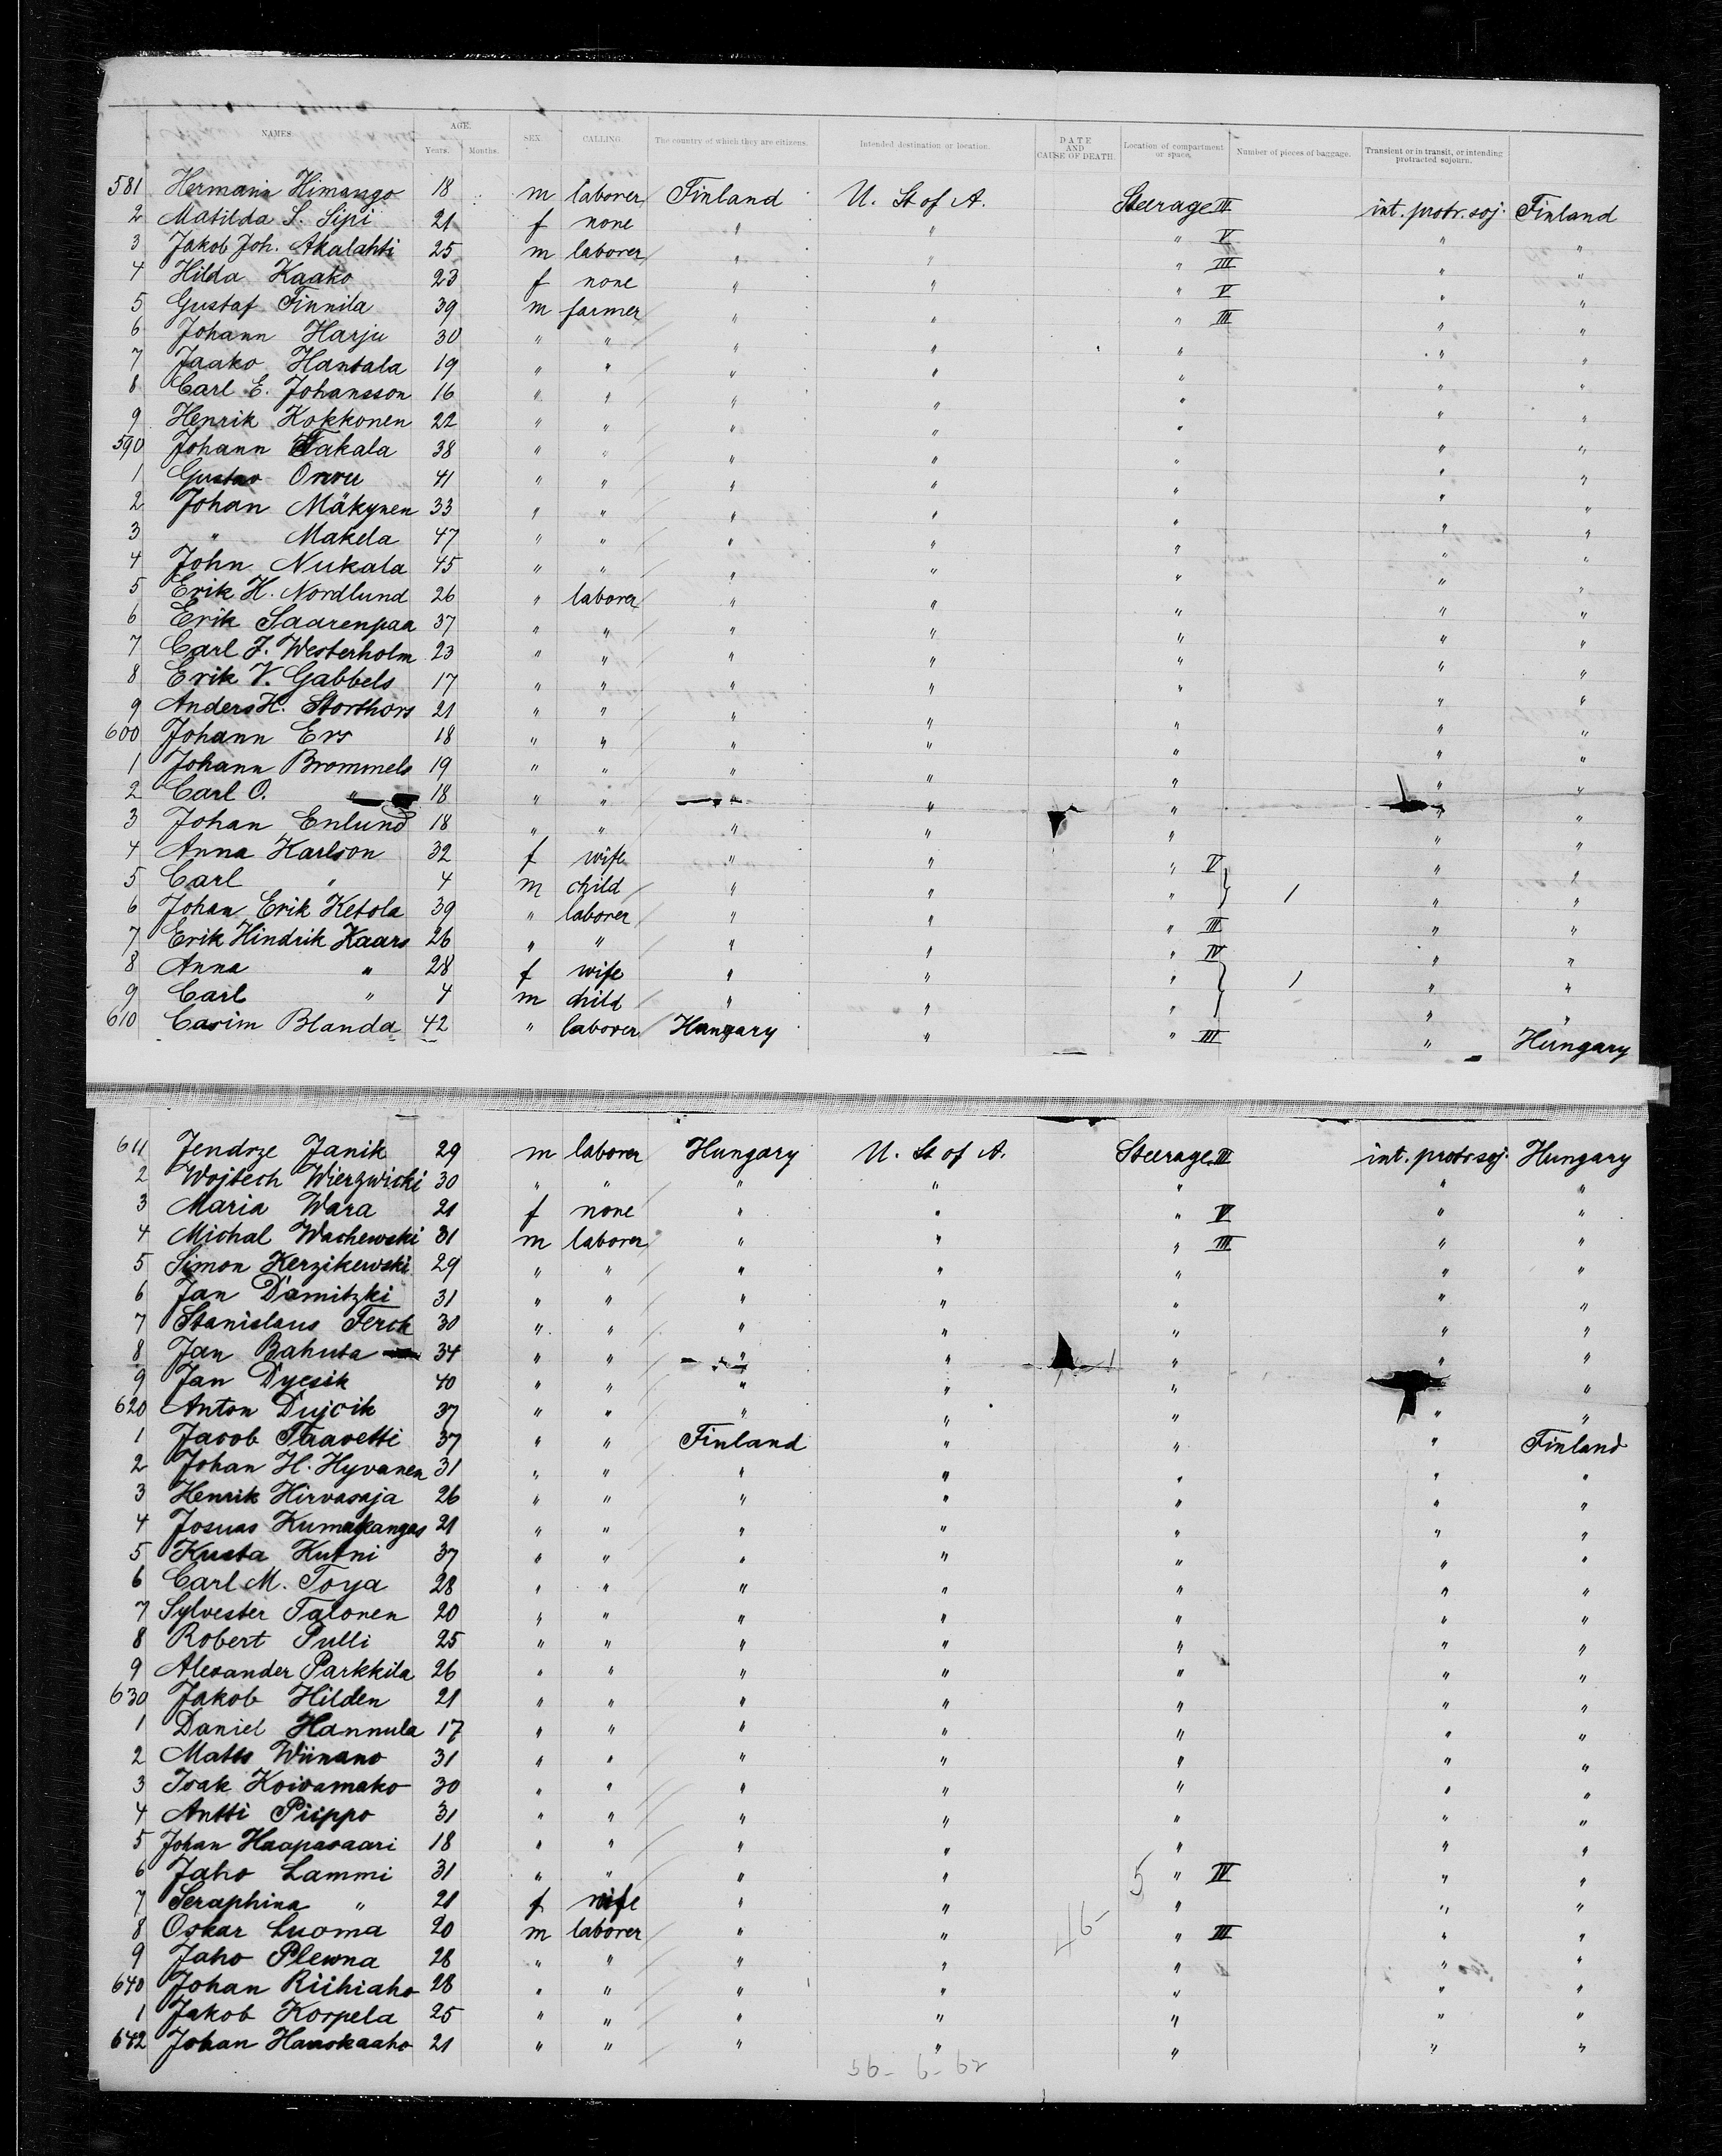 NAMES AGE. Years. Months. SEX. CALLING. The country of which they are citizens. Intended destination or location. DATE AND CAUSE OF DEATH. Location of compartment or space. Number of pieces of baggage. Transient or in transit, or intending protracted sojourn.
581 Hermann Himango 18 m laborer Finland U. St of A. Steerage III int. protr. soj. Finland
2 Matilda S. Sipi 21 f none " " " V " "
3 Jakob Joh. Akalahti 25 m laborer " " " III " "
4 Hilda Kaako 23 f none " " " V " "
5 Gustaf Finnila 39 m farmer " " " III " "
6 Johann Harju 30 " " " " " " "
7 Jaako Hantala 19 " " " " " " "
8 Carl E. Johansson 16 " " " " " " "
9 Henrik Kokkonen 22 " " " " " " "
590 Johann Takala 38 " " " " " " "
1 Gustav 41 " " " " " " "
2 Johan Mäkynen 33 " " " " " " "
3 " Makela 47 " " " " " " "
4 John Nukala 45 " " " " " " "
5 Erik H. Nordlund 26 " laborer " " " " "
6 Erik Saarenpaa 37 " " " " " " "
7 Carl J. Westerholm 23 " " " " " " "
8 Erik V. Gabbels 17 " " " " " " "
9 Anders H. Storthors 21 " " " " " " "
600 Johann Ers 18 " " " " " " "
1 Johann Brommels 19 " " " " " " "
2 Carl O. " 18 " " " " " " "
3 Johan Enlund 18 " " " " " " "
4 Anna Karlson 32 f wife " " " V " "
5 Carl " 4 m child " " " 1 " "
6 Johan Erik Ketola 39 " laborer " " " III " "
7 Erik Hindrik Kaars 26 " " " " " IV " "
8 Anna " 28 f wife " " " 1 " "
9 Carl " 4 m child " " " " "
610 Casim Blanda 42 " laborer Hungary " " III " Hungary
611 Jendrze Janik 29 m laborer Hungary U. St of A. Steerage III int. protr soj. Hungary
2 Wojtech Wierzwicki 30 " " " " " " "
3 Maria Wara 21 f none " " " V " "
4 Michal Wachewski 31 m laborer " " " III " "
5 Simon Kerzikewski 29 " " " " " " "
6 Jan Damitzki 31 " " " " " " "
7 Stanislaus Ferch 30 " " " " " " "
8 Jan Bahuta 34 " " " " " " "
9 Jan Dyesik 40 " " " " " "
620 Anton Dujcik 37 " " " " " " "
1 Jacob Taavetti 37 " " Finland " " " Finland
2 Johan H. Hyvanen 31 " " " " " " "
3 Henrik Hirvasaja 26 " " " " " " "
4 Josuas Kumpkangas 21 " " " " " " "
5 Kusta Kutni 37 " " " " " " "
6 Carl M. Toya 28 " " " " " " "
7 Sylvester Talonen 20 " " " " " " "
8 Robert Pulli 25 " " " " " " "
9 Alexander Parkkila 26 " " " " " " "
630 Jakob Hilden 21 " " " " " " "
1 Daniel Hannula 17 " " " " " " "
2 Matts Wiinano 31 " " " " " " "
3 Isak Koivamako 30 " " " " " " "
4 Antti Piippo 31 " " " " " " "
5 Johan Haapasaari 18 " " " " " " "
6 Jaho Lammi 31 " " " " 5 " IV " "
7 Seraphina " 21 f wife " " " " "
8 Oskar Luoma 20 m laborer " " 46- " III " "
9 Jaho Plewna 28 " " " " " " "
640 Johan Riihiaho 28 " " " " " " "
1 Jakob Korpela 25 " " " " " " "
642 Johan Hauskaaho 21 " " " " " " "
56- 6- 62